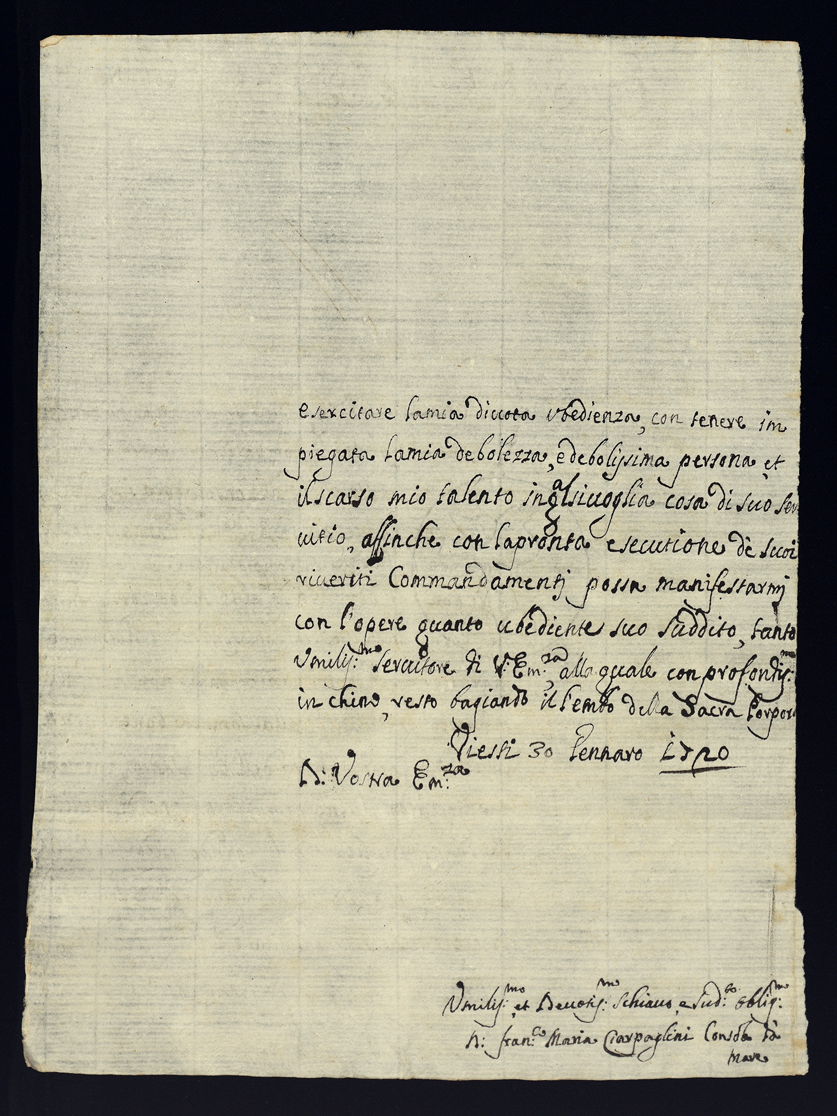 esercitare lamia divota vbedienza, con tenere im
piegata lamia debolezza, è debolissima persona, et
ilscarso mio talento in qalsivoglia cosa di suo ser
uitio, affinche con lapronta esecutione dè suoi
riueriti Commandamentj possa manifestarmj
con l'opere quanto ubediente suo suddito, tanto
Vmilis:mo seruitore di V: Em:za alla quale con profondis:mo
inchino, resto bagiando il lembo della Sacra Porpora
Viesti 30 Gennaro 1720
D: Vostra Em:za
Vmilis:mo et Deuotis:mo schiauo, e sud:to oblig:mo
D: Fran:co Maria Ciarpaglini Console di
mare